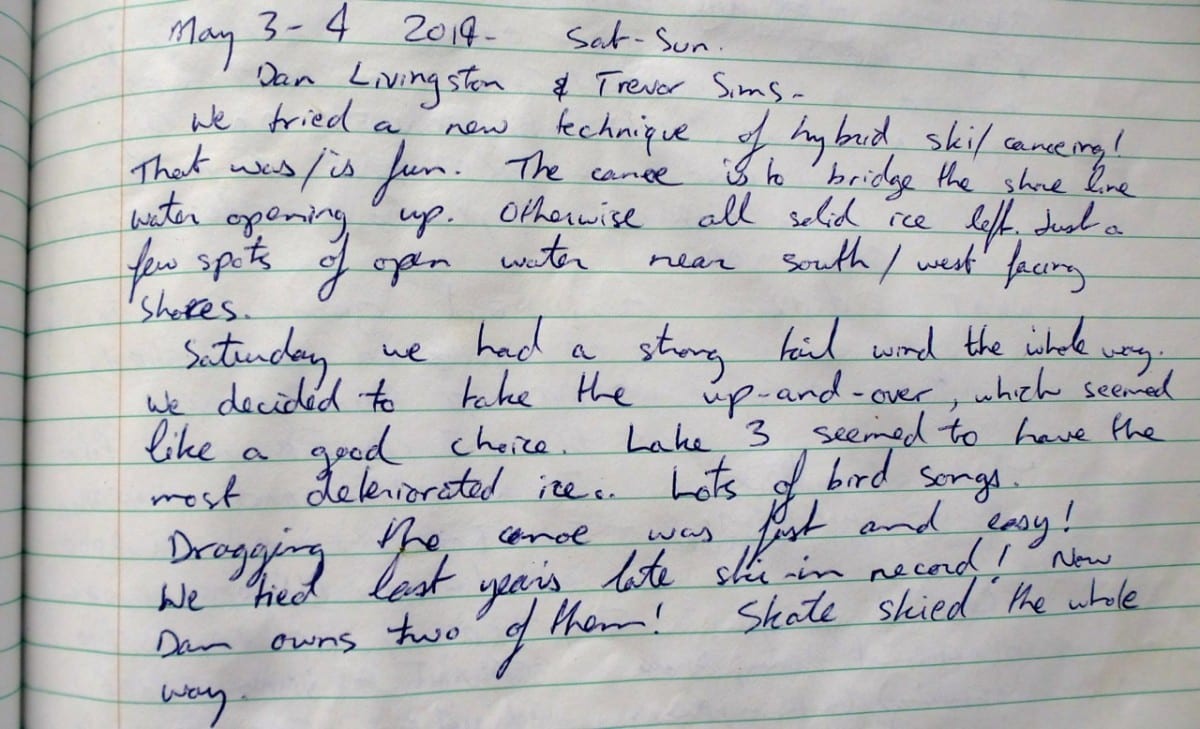 May 3-4 2014- Sat-Sun.
Dan Livingston & Trevor Sims-
We tried a new technique of hybrid ski/canoeing!
That was/is fun. The canoe is to bridge the shore line
water opening up. Otherwise all solid ice left. Just a
few spots of open water near south/west facing
shores.
Saturday we had a strong tail wind the whole way.
We decided to take the up-and-over, which seemed
like a good choice. Lake 3 seemed to have the
most deteriorated ice... Lots of bird songs.
Dragging the canoe was fast and easy!
We tied last year's late ski-in record! Now
Dan owns two of them! Skate skied the whole
way.